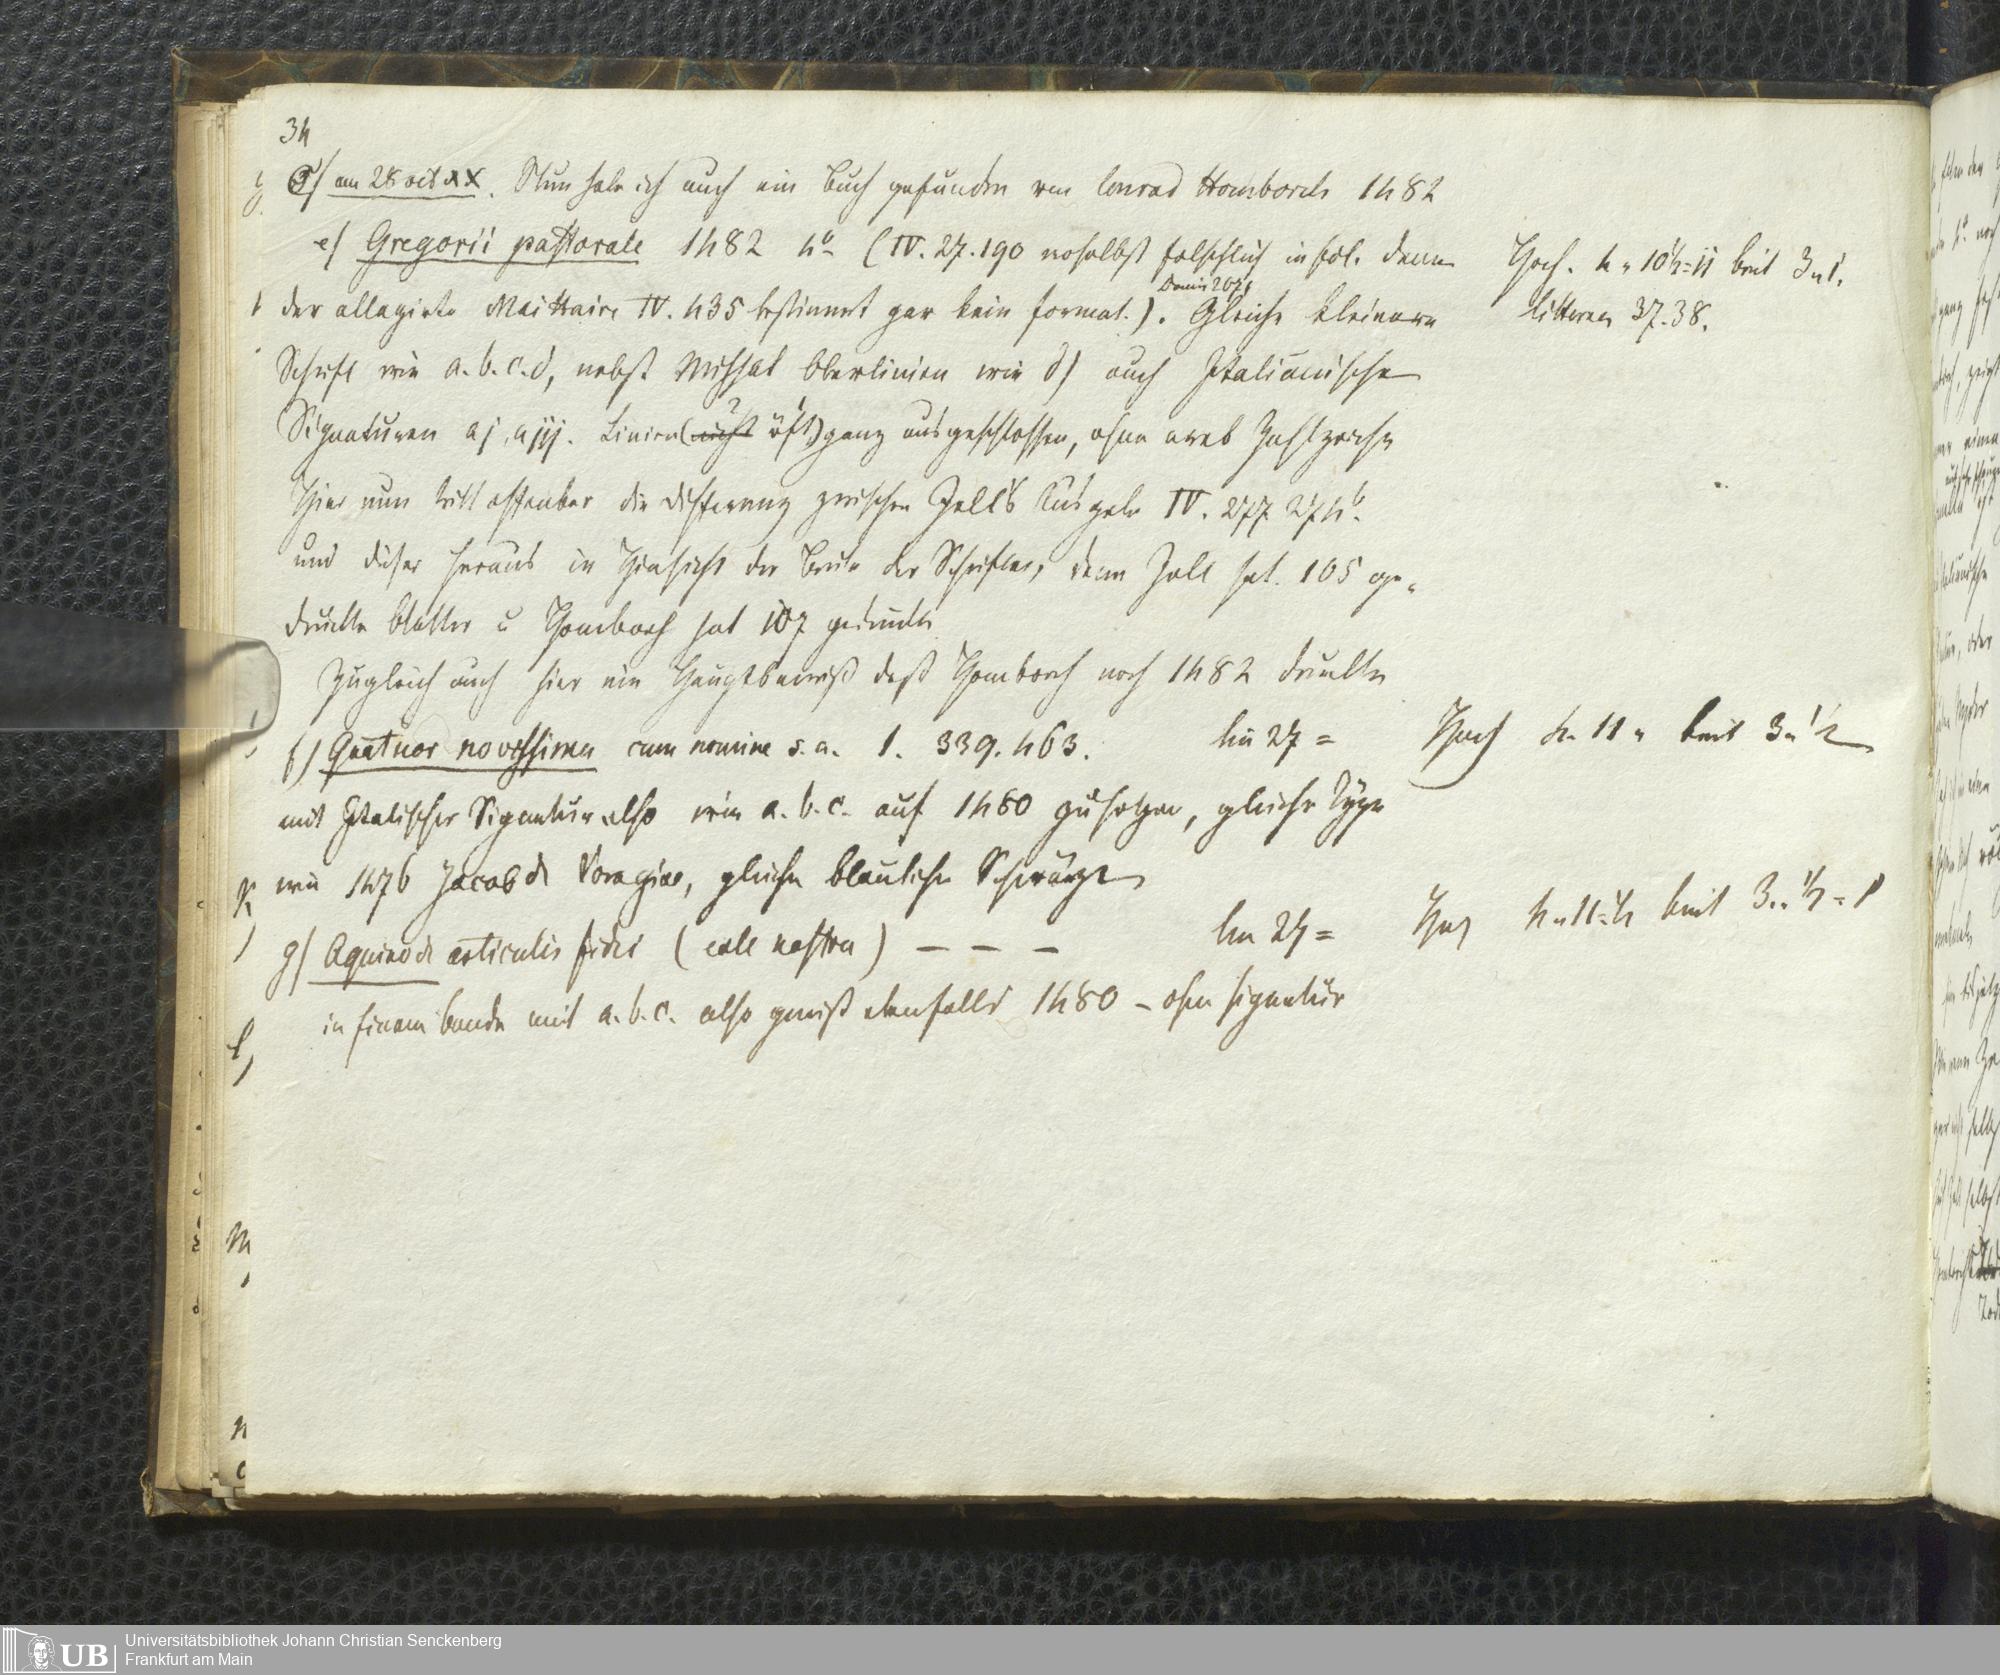 34
am 28 oct XX. Nun habe ich auch ein Buch gefunden von Conrad Homborch 1482
e) Gregorii pastorale 1482 4º (IV. 27. 190 woselbst fälschlich in fol. denn
Hoch. 4 " 10½ = 11 breit 3 " 1.
Denis 207
der allegirte Maittaire IV. 435 bestimmt gar kein format.). Gleiche kleinere
Litteren 37-38.
Schrift wie a. b. c. d, nebst Missal Oberlinien wie d) auch Italiänische
Signaturen aj, a jjj. Linien (nicht oft) ganz ausgeschlossen, ohne arab Zahlzeichen
Hier nun tritt offenbar die Differenz zwischen Zell's Ausgabe IV. 277. 274b.
und dieser heraus in Hinsicht der Breite der Schriften, denn Zell hat 105 ge-
druckte Blätter u Homborch hat 107 gedruckte
Zugleich auch hier ein Hauptbeweiß daß Homborch noch 1482 druckte
f) Quatuor novissima cum nomine s. a. 1. 339. 463.
lin 27 =
Hoch 4 " 11 " breit 3 " ½
mit Italischer Signatur also wie a. b. c. auf 1480 zu setzen, gleiche Type
wie 1476 Jacob de Voragine, gleiche bläuliche Schwärze
g) Aquino de articulis fidei (cale nostra) — — —
lin 27 =
Hoch 4 " 11 = ¼ breit 3 " ½ = 1
in einem bande mit a. b. c. also gewiß ebenfalls 1480 - ohne signatur
Universitätsbibliothek Johann Christian Senckenberg
UB
Frankfurt am Main